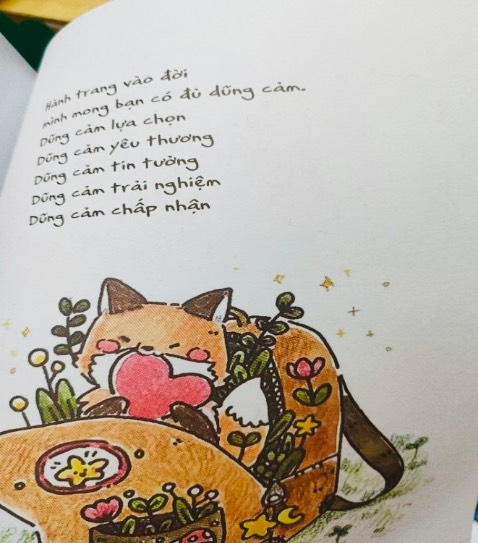 Hành trang vào đời
mình mong bạn có đủ dũng cảm.
Dũng cảm lựa chọn
Dũng cảm yêu thương
Dũng cảm tin tưởng
Dũng cảm trải nghiệm
Dũng cảm chấp nhận